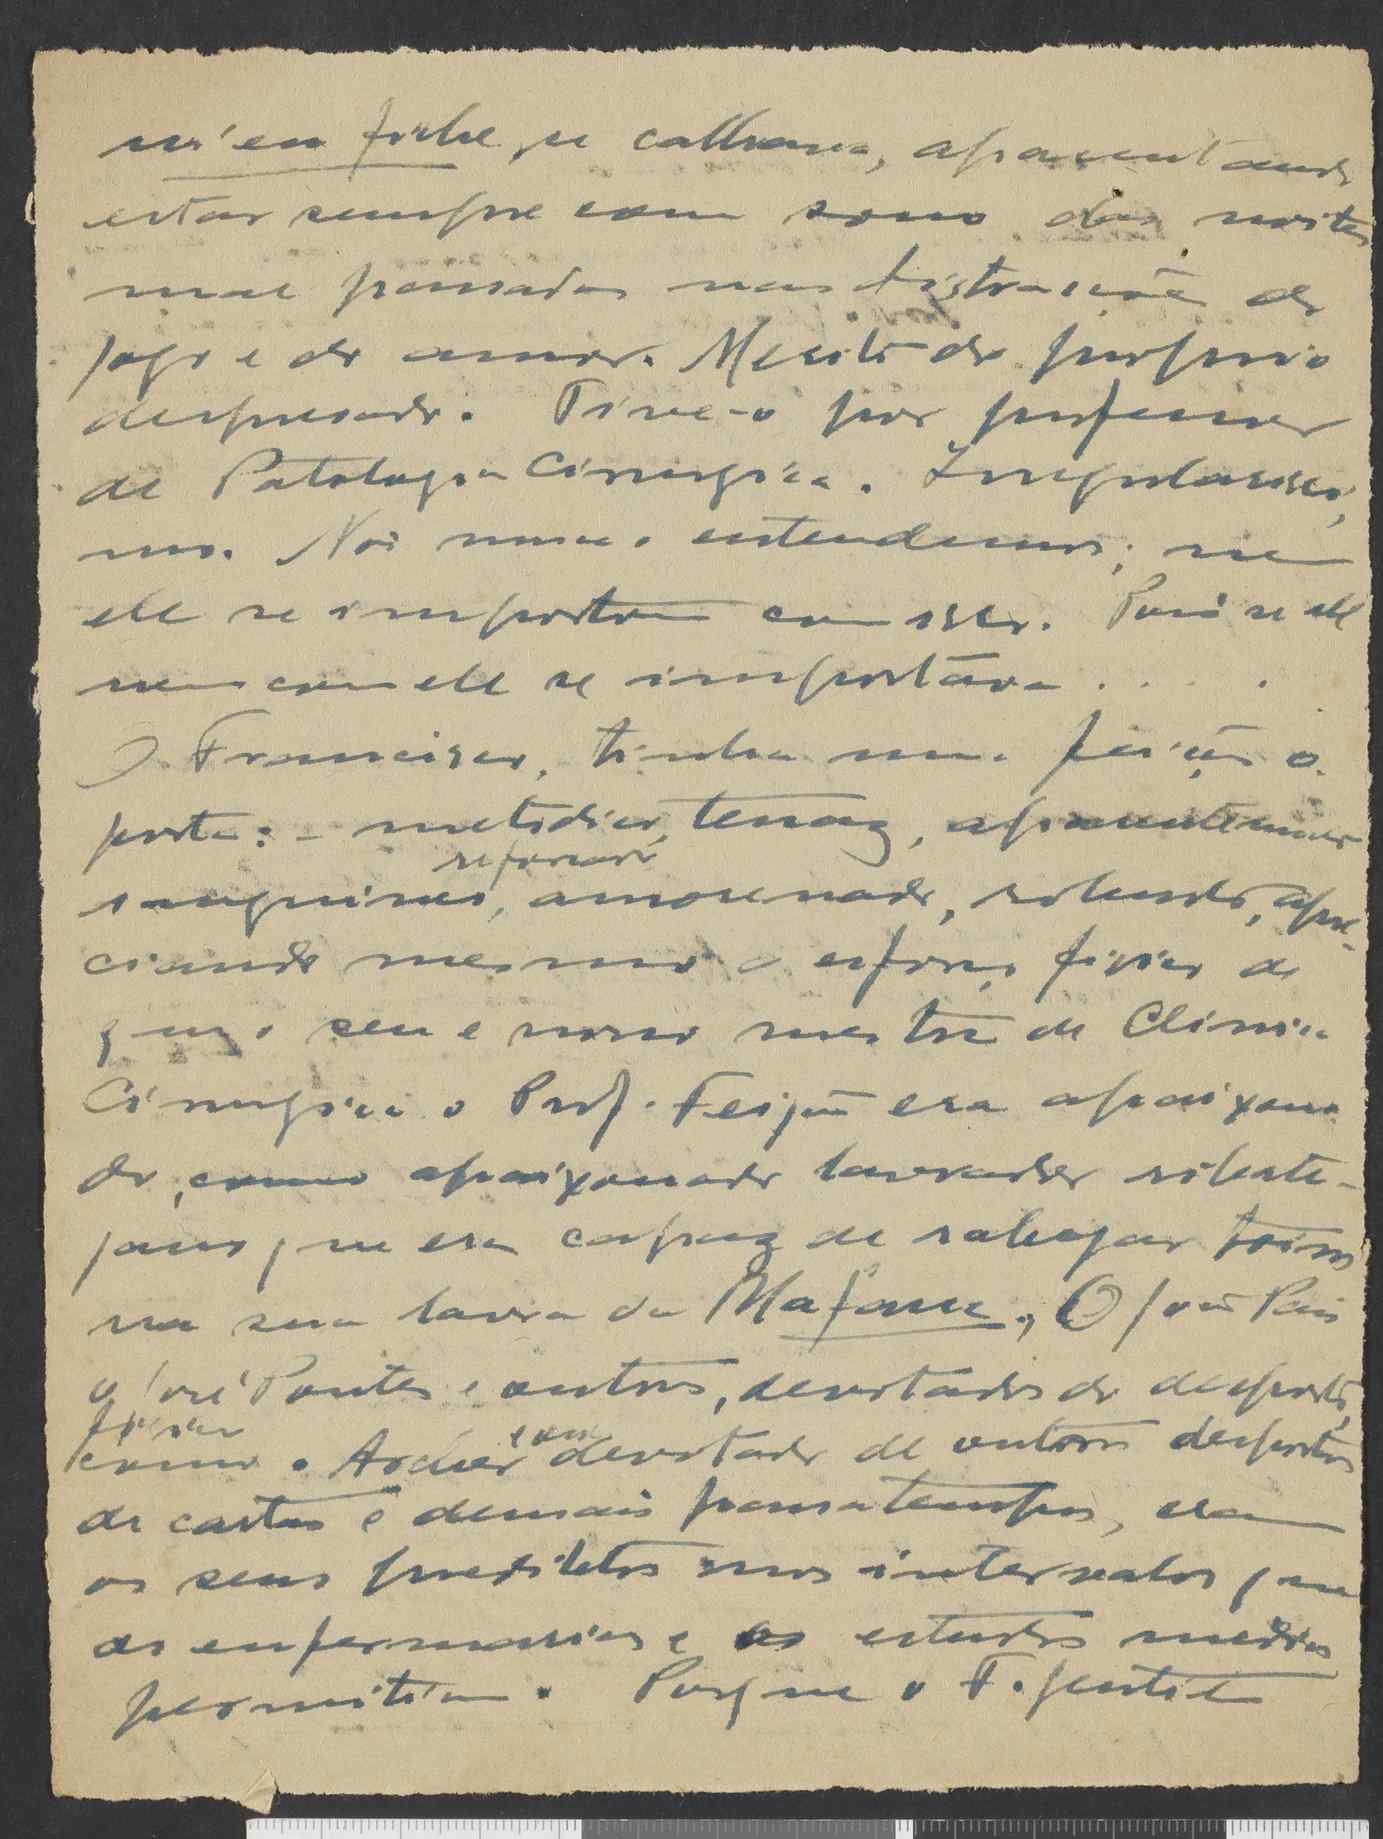 m'en fiche, se calhava, aparentando
estar sempre com sono das noites
mal passadas nas distrações do
jogo e do amor. Mesito de proprio
despresado. Tive-o por professor
de Patologia Cirurgica. Irregularissi,
mo. Nós nunca o entendemos; nem
ele se importou com isso. Pois se ele
nem com ele se importava . . . .
O Francisco, tinha uma feição o
posta: - metodico, tenaz, aparentemente
reforçado
sanguineo, amorenado, robusto, apre-
ciando mesmo o esforço fisico de
que o seu e nosso mestre de Clinica
Cirurgica o Prof. Feijão era apaixona
do, como apaixonado lavrador ribate-
jano que era capaz de rabejar toiros
na sua lavra da Mafarra., O João Pais
o José Pontes e outros, devotados do desporto,
fisico
como o Archer e eu devotado de outros desportos
de cartas e demais passatempos, eram
os seus predilectos nos intervalos que
as enfermarias e os estudos medicos
permitiam. Porque o F. Gentil